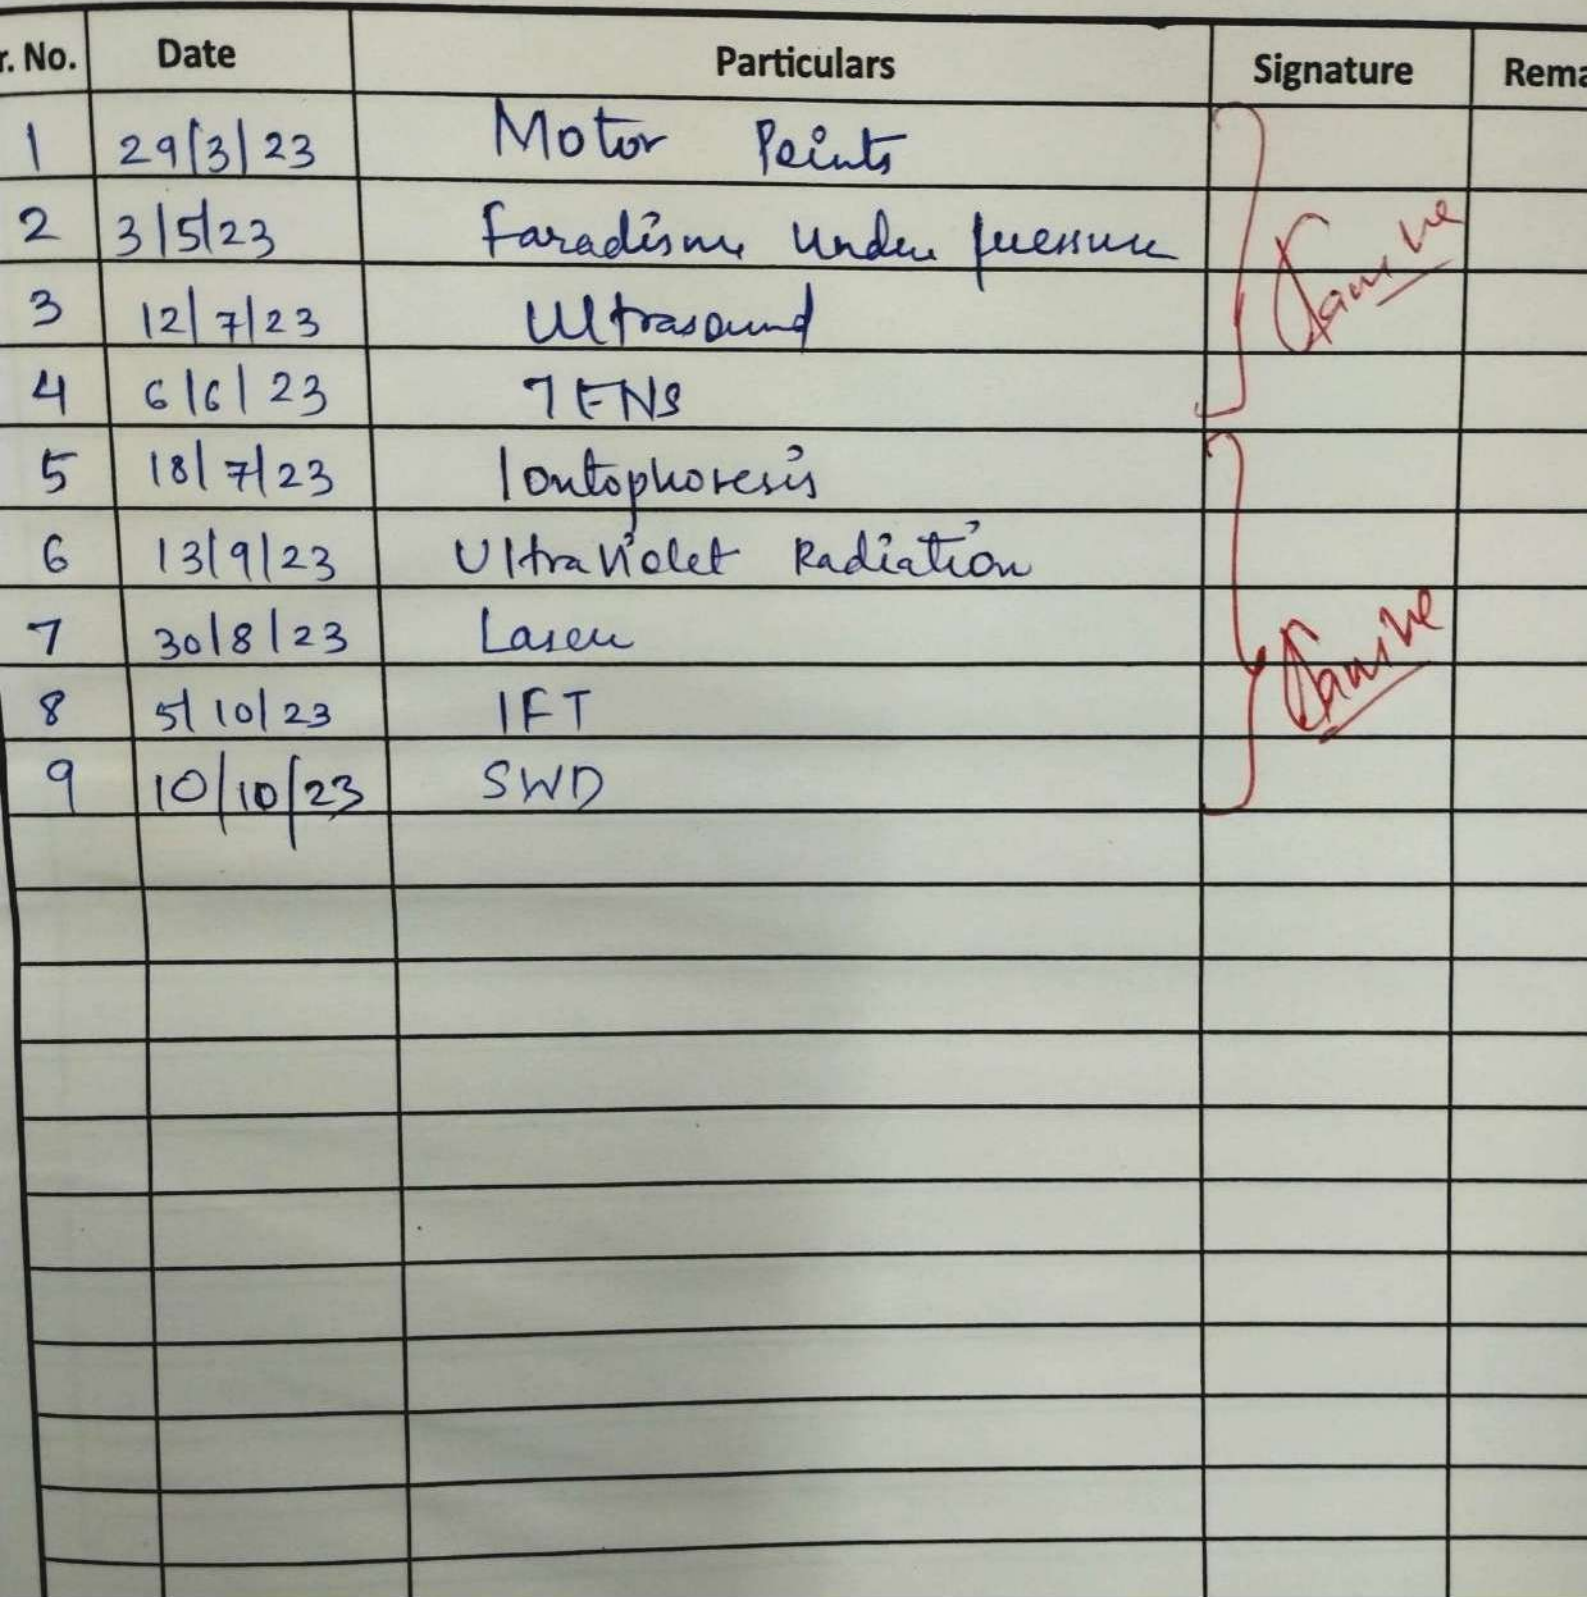 r. No. Date Particulars Signature Rema
1 29/3/23 Motor Points
2 3/5/23 Faradism Under pressure
3 12/7/23 Ultrasound
4 6/6/23 TENS
5 18/7/23 Iontophoresis
6 13/9/23 Ultraviolet Radiation
7 30/8/23 Laser
8 5/10/23 IFT
9 10/10/23 SWD